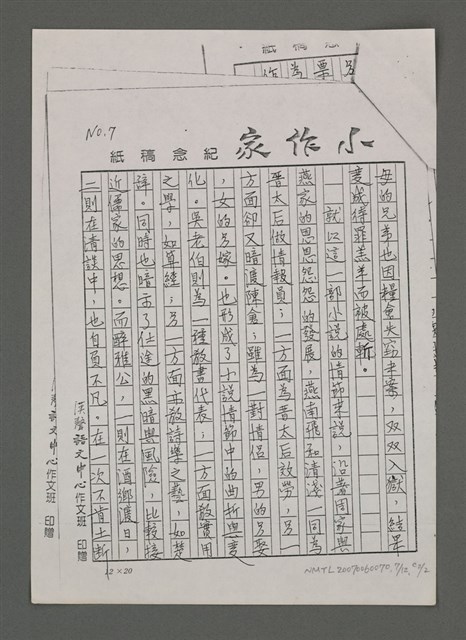 No.7
小作家 紀念稿紙
母的兄弟也因糧倉失竊牽案，双双入獄，結果
變成待罪羔羊而被處斬。
就以這一部小說的情節來說，沿著周家與
燕家的恩恩怨怨的發展，燕南飛和清淺一同為
晋太后做情報員；一方面為晋太后效勞，另一
方面卻又暗渡陳倉；雖為一對情侶，男的另娶
，女的另嫁。也形成了小說情節中的曲折與變
化。吳老伯則為一種教書代表；一方面教實用
之學，如算經；另一方面亦教詩樂之藝，如楚
辭。同時也暗示了仕途的黑暗與風險，比較接
近儒家的思想。而醉雅公，一則在酒鄉渡日，
二則在清談中，也自負不凡。在一次不肯土斷
漢聲語文中心作文班 印贈
語文中心作文班 印贈
12×20
NMTL20070060070, 7/12,
另
票
為
作